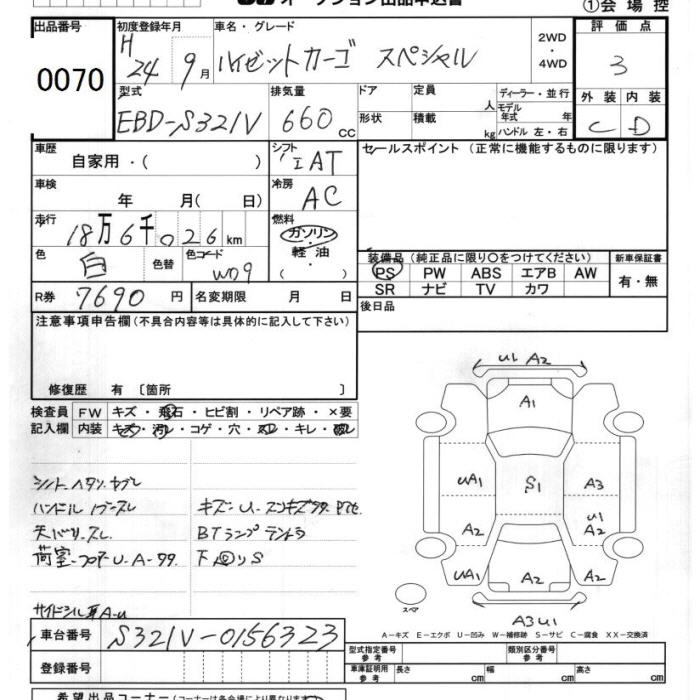 オークション出品申込書
①会場控
出品番号 初度登録年月 車名・グレード 評価点
0070 H24 9月 ハイゼットカーゴ スペシャル 2WD・4WD 3
型式 排気量 ドア 定員 人 ディーラー・並行 外装 内装
EBD-S321V 660cc 形状 積載 kg モデル年式 年 ハンドル 左・右 C D
車歴 シフト セールスポイント (正常に機能するものに限ります)
自家用・( ) AT
車検 冷房
年 月( 日) AC
走行 燃料
18万6千026km ガソリン・軽油・( )
色 色替 色コード 装備品 (純正品に限り○をつけてください) 新車保証書
白 W09 PS PW ABS エアB AW 有・無
SR ナビ TV カワ
R券 7690円 名変期限 月 日 後日品
注意事項申告欄 (不具合内容等は具体的に記入して下さい)
修復歴 有 [箇所 ]
検査員 FW キズ・飛石・ヒビ割・リペア跡・×要
記入欄 内装 キズ・汚レ・コゲ・穴・スレ・キレ・破レ
U1 A2
A1
UA1 S1 A3
A2 U1 A2
UA1 A2 A2
スペア
A3 U1
シート ヘタリ ヤブレ
ハンドル
天バリ スレ BTランプテントウ
荷室・フロア U-A- 下回リS
サイドシル A-U
A-キズ E-エクボ U-凹み W-補修跡 S-サビ C-腐食 XX-交換済
車台番号 S321V-0156323
型式指定番号 参考 類別区分番号 参考
登録番号
車庫証明用 参考 長さ cm 幅 cm 高さ cm
希望出品コーナー (コーナーは各会場により異なります)